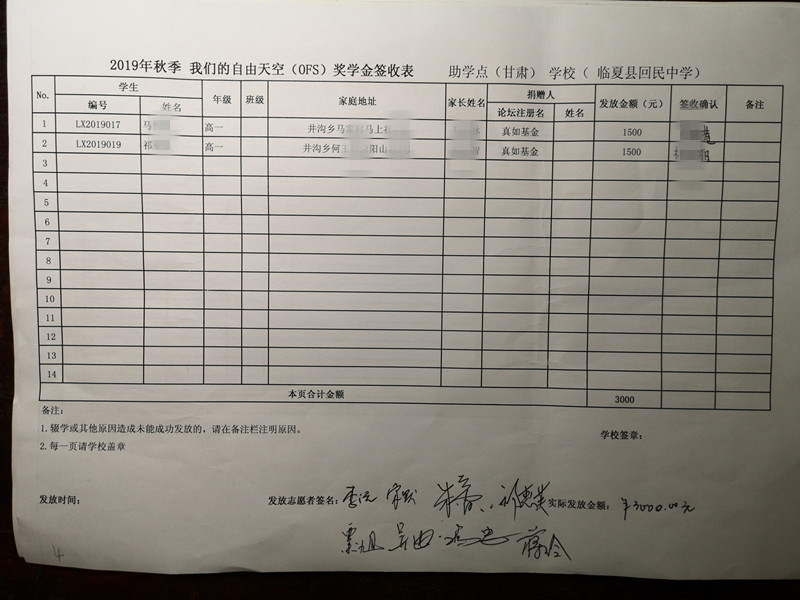 2019年秋季 我们的自由天空（OFS）奖学金签收表 助学点（甘肃） 学校（ 临夏县回民中学）
No. 学生 年级 班级 家庭地址 家长姓名 捐赠人 发放金额（元） 签收确认 备注
编号 姓名 论坛注册名 姓名
1 LX2019017 马 高一 井沟乡马 马上 真如基金 1500
2 LX2019019 祁 高一 井沟乡何 阳山 真如基金 1500
3
4
5
6
7
8
9
10
11
12
13
14
本页合计金额 3000
备注：
1. 辍学或其他原因造成未能成功发放的，请在备注栏注明原因。
2. 每一页请学校盖章
学校签章：
发放时间： 发放志愿者签名： 实际发放金额： ¥3000.00元
4